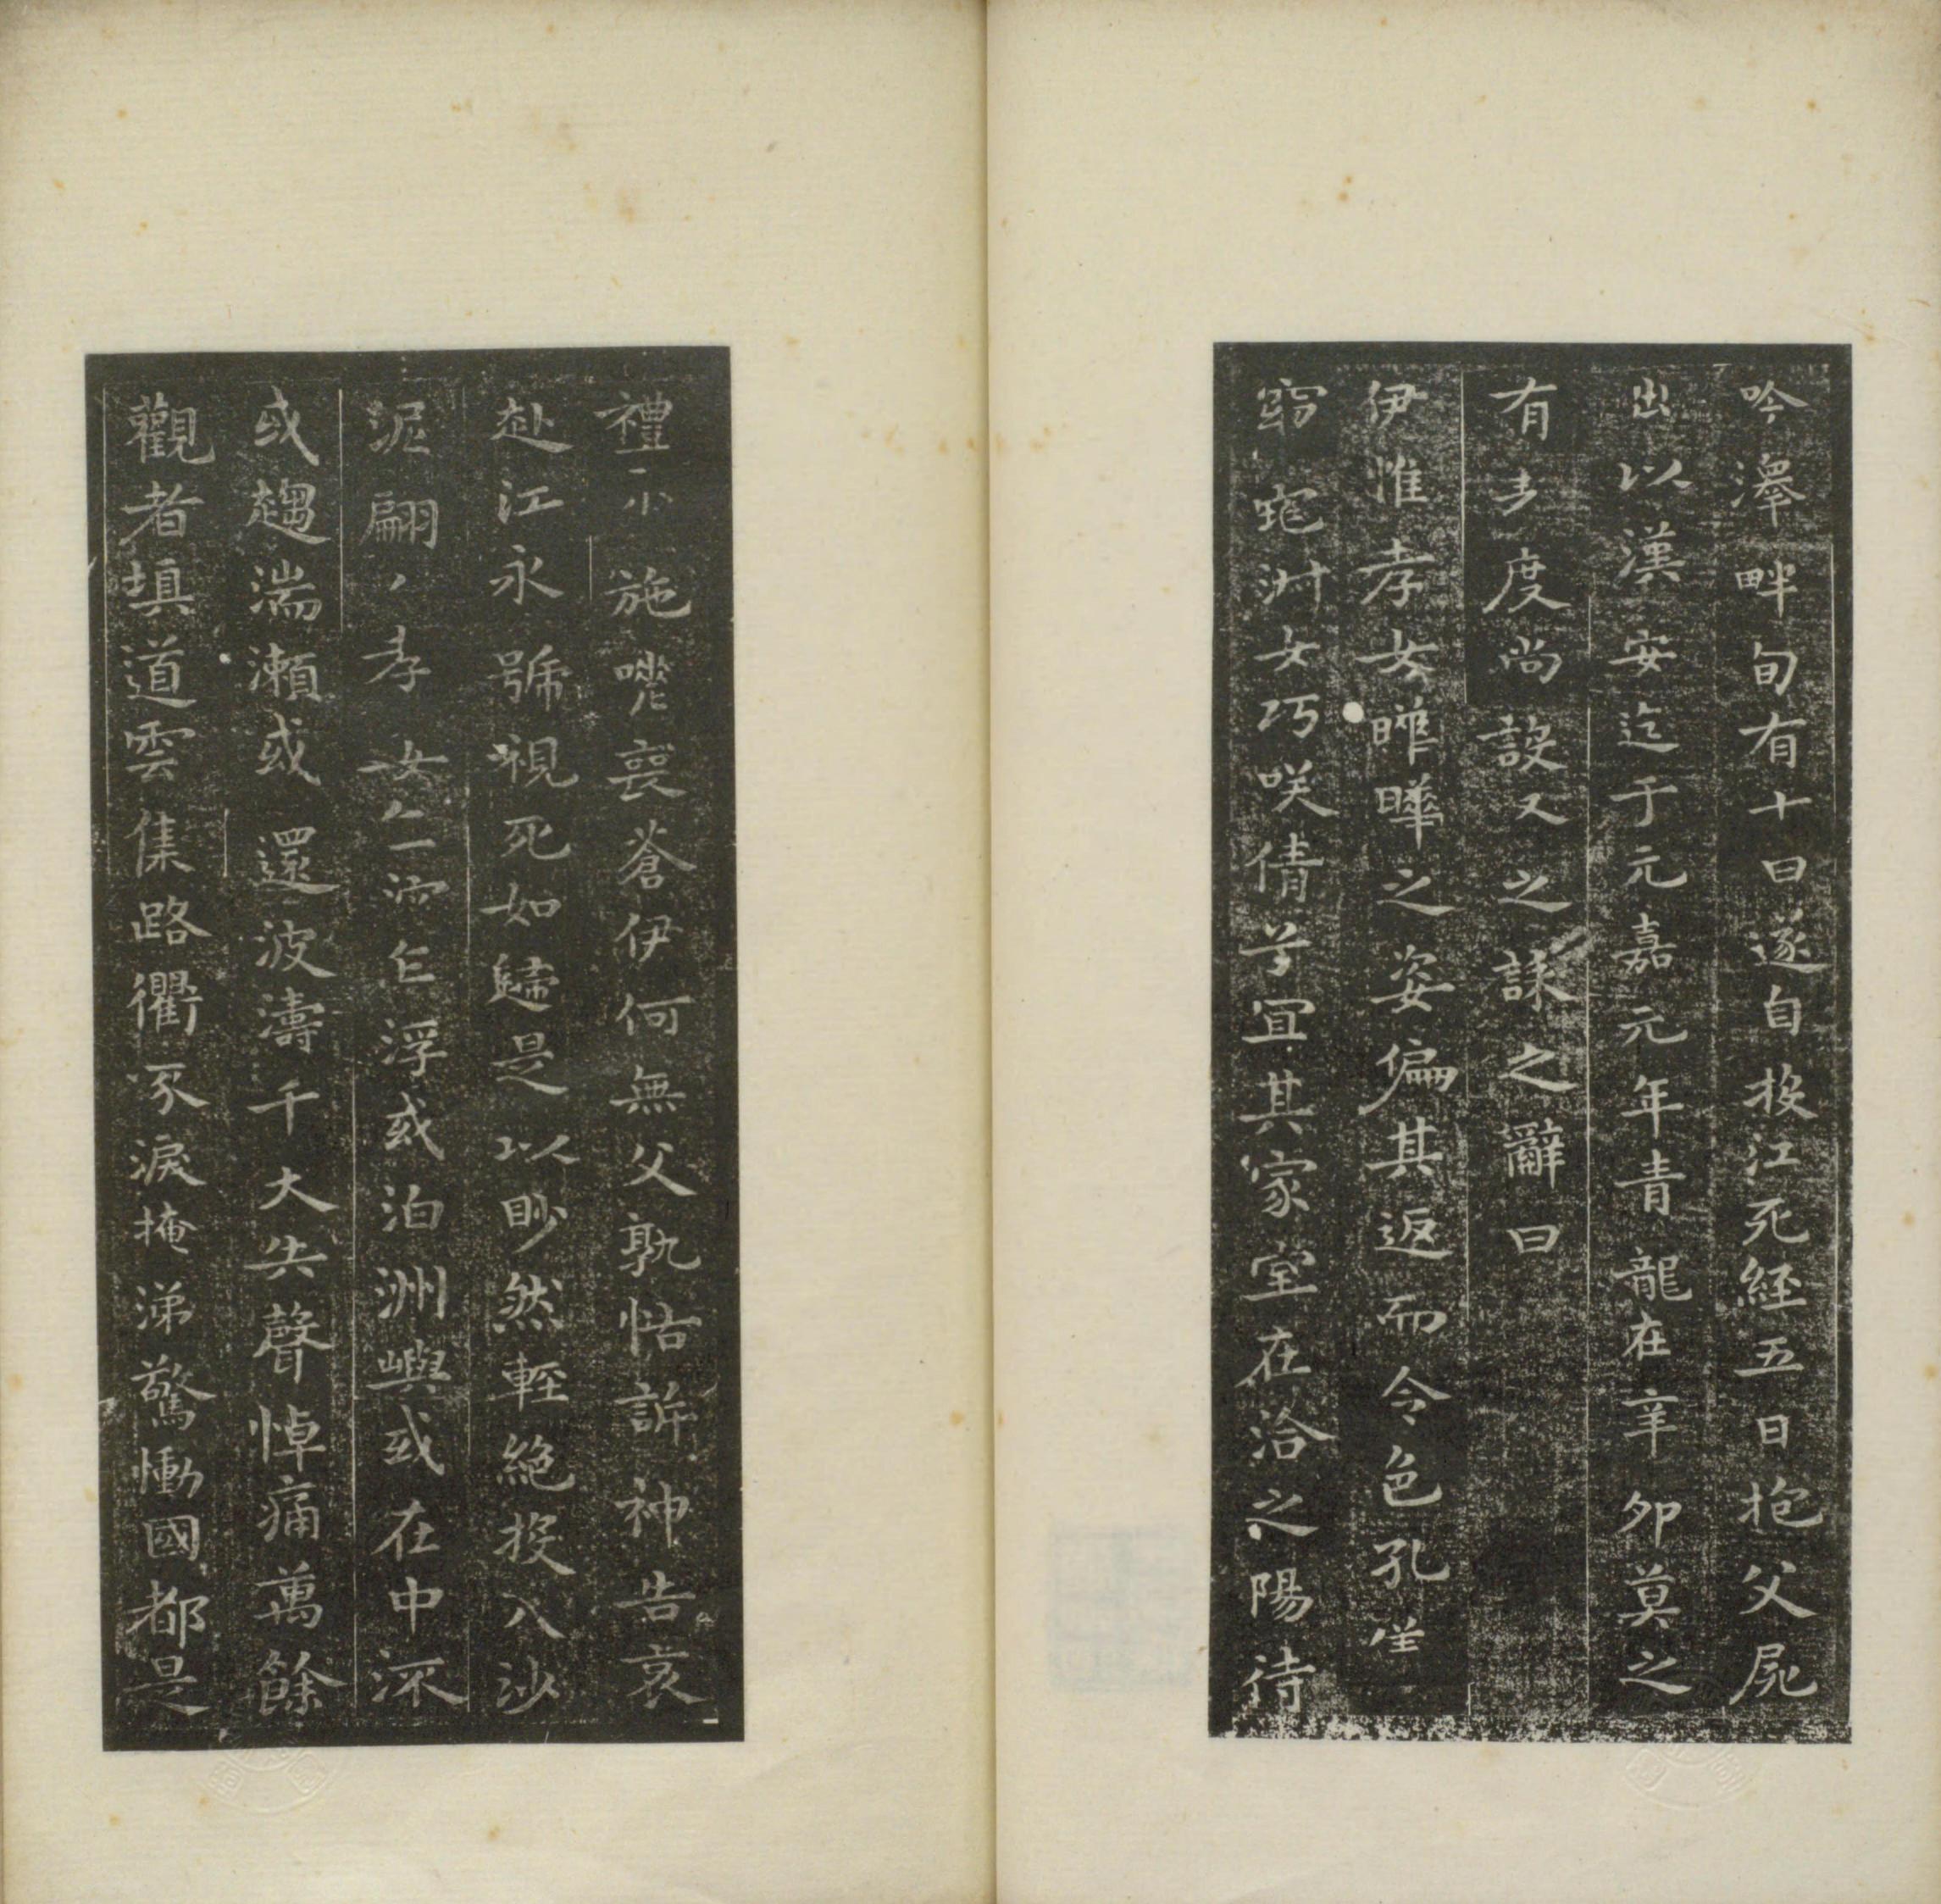 吟澤畔旬有十日遂自投江死經五日抱父屍
出以漢安迄于元嘉元年青龍在辛卯莫之
有表度尚設又之誄之辭曰
伊惟孝女曄曄之姿偏其返而令色孔
窈窕淑女巧咲倩兮宜其家室在洽之陽待
禮未施嗟喪蒼伊何無父孰怙訴神告哀
赴江永號視死如歸是以眇然輕絕投入沙
泥翩翩孝女乍沉乍浮或泊洲嶼或在中流
或趨湍瀨或還波濤千夫失聲悼痛萬餘
觀者填道雲集路衢泣淚掩涕驚慟國都是